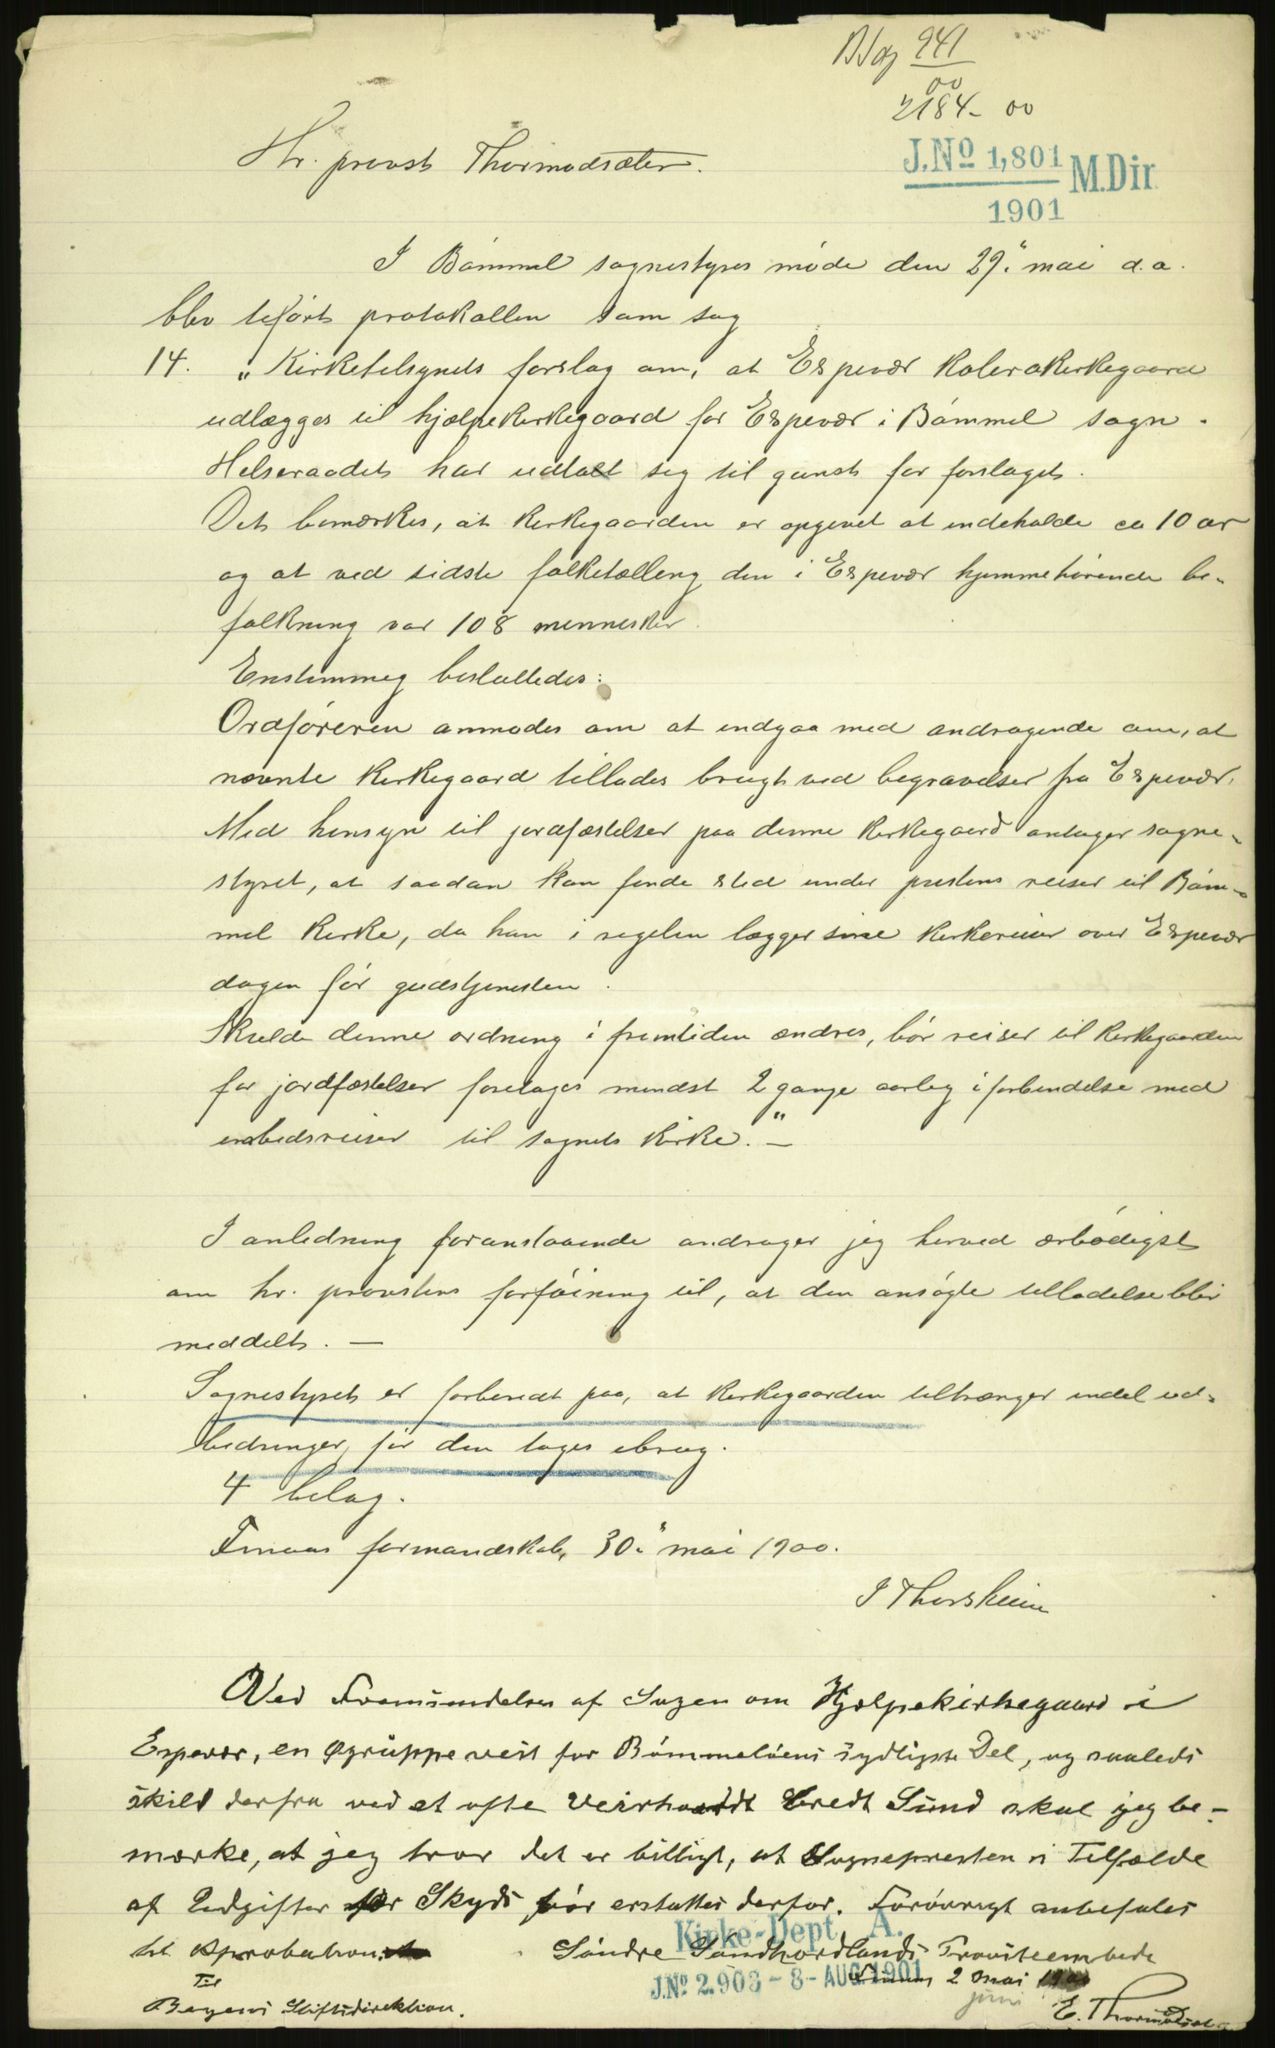 BJog 941
00
2184-00
J.Nº 1,801 M.Dir
1901
Hr. provst Thormodsæter.
I Bømmel sognestyres møde den 29.de mai d.a.
blev tilført protokollen som sag
14. "Kirketilsynets forslag om, at Espevær kolerakirkegaard
udlægges til hjælpekirkegaard for Espevær i Bømmel sogn.
Helseraadet har udtalt sig til gunst for forslaget.
Det bemærkes, at kirkegaarden er opgivet at indeholde ca 10 ar
og at ved sidste folketælling den i Espevær hjemmehørende be-
folkning var 108 mennesker.
Enstemmig besluttedes:
Ordføreren anmodes om at indgaa med andragende om, at
nævnte kirkegaard tillades brugt ved begravelser fra Espevær.
Med hensyn til jordfæstelser paa denne kirkegaard antager sogne-
styret, at saadan kan finde sted under prestens reiser til Bøm-
mel kirke, da han i regelen lægger sine kirkereiser over Espevær
dagen før gudstjenesten.
Skulde denne ordning i fremtiden ændres, bør reiser til kirkegaarden
for jordfæstelser foretages mindst 2 gange aarlig i forbindelse med
embedsreiser til sognets kirke." —
I anledning foranstaaende andrager jeg herved ærbødigst
om hr. provstens forføining til, at den ansøgte tilladelse blir
meddelt. —
Sognestyret er forberedt paa, at kirkegaarden tiltrænger endel ud-
bedringer, før den tages ibrug.
4 bilag.
Finaas formandskab, 30.te mai 1900.
J Thorsheim
Ved Fremsendelse af Sagen om Hjælpekirkegaard i
Espevær, en Øgruppe vest for Bømmeløens sydligste Del, og saaleds
skilt derfra ved et ofte veirhaardt bredt Sund skal jeg be-
mærke, at jeg tror det er billigt, at Sognepresten i Tilfælde
af Udgifter for Skyds bør erstattes derfor. Forøvrigt anbefales
til Aprobation.
Søndre Søndhordlands Provsteembede
Kirke-Dept. A.
J.Nº 2.903 - 8 - AUG. 1901
Finaas 2 mai 1900
juni
Til
Bergens Stiftsdirektion.
E. Thormodsæter